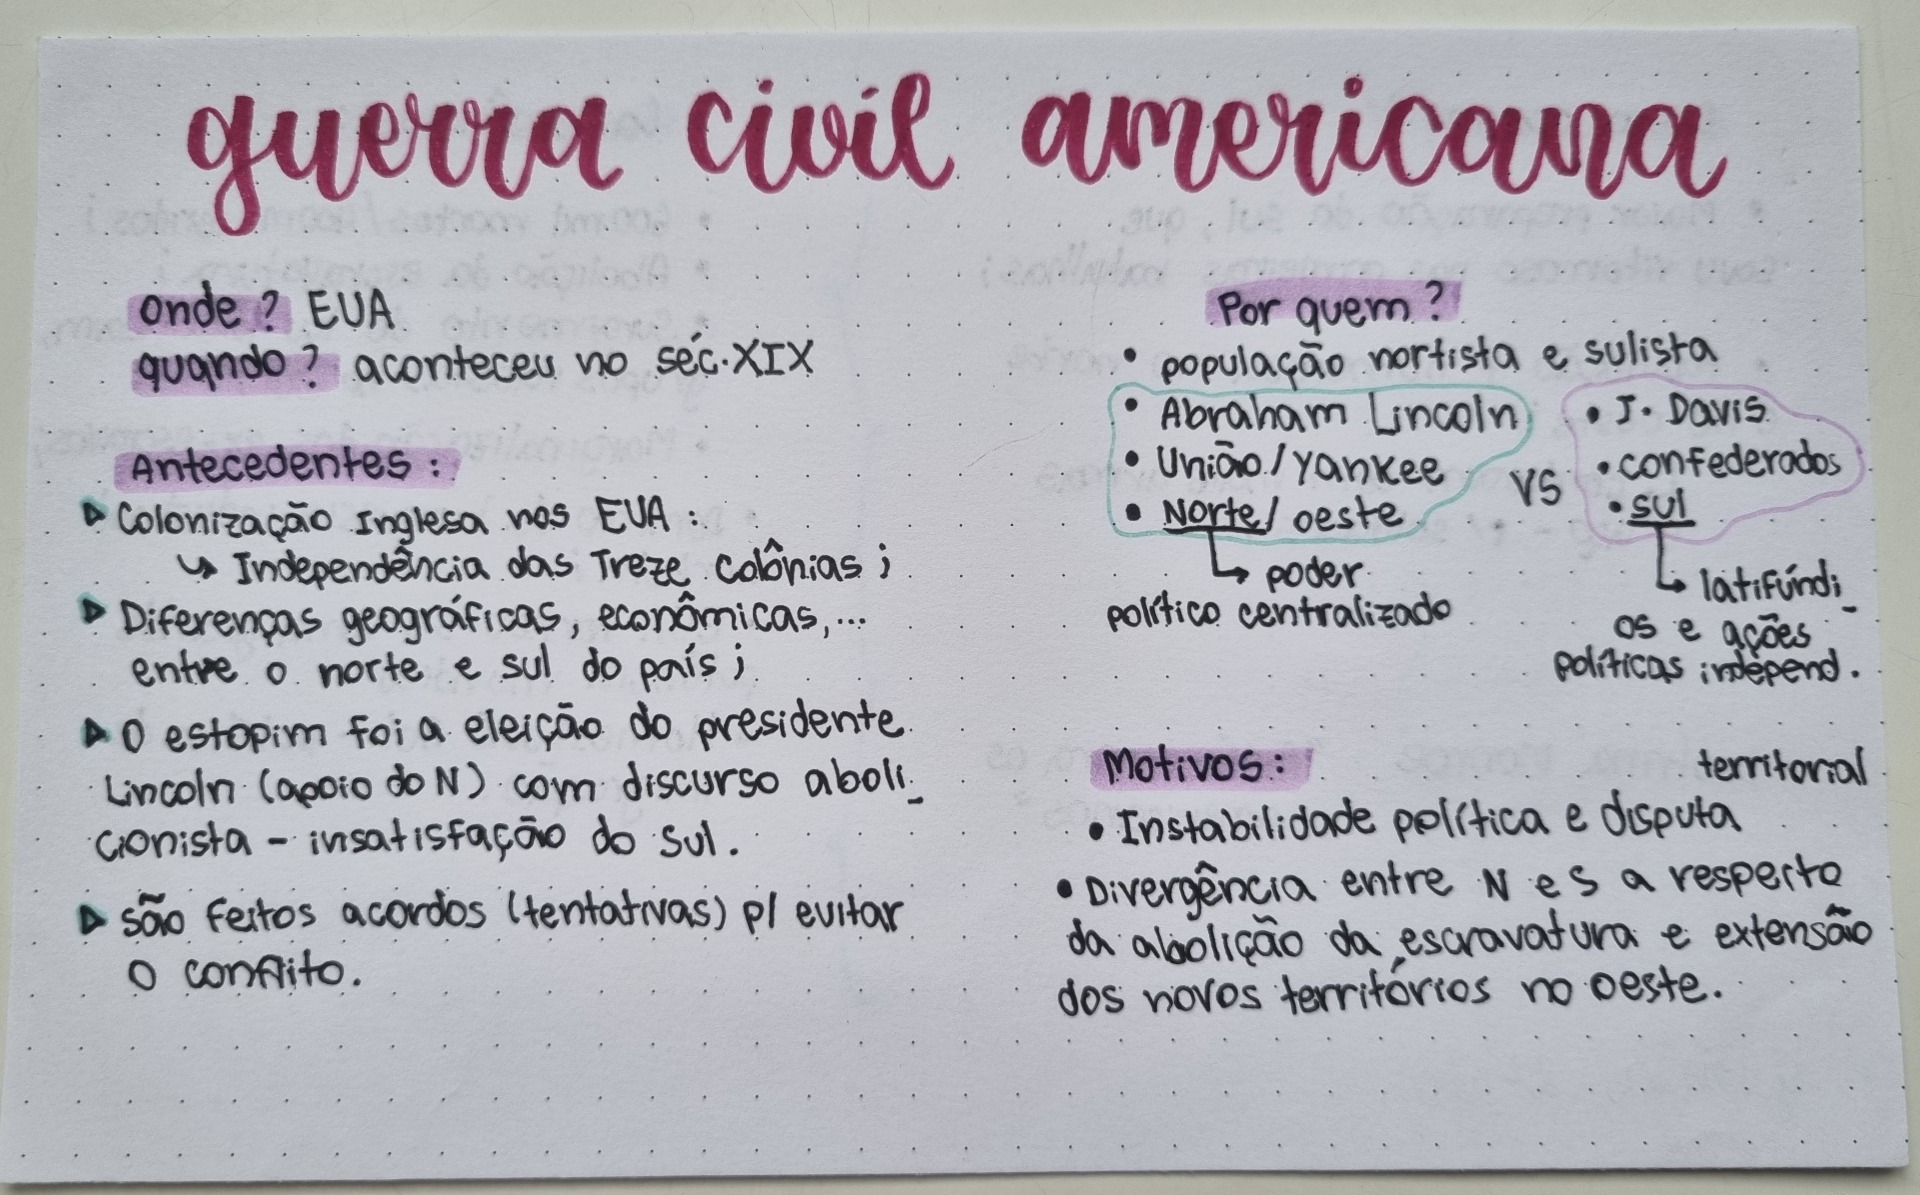 guerra civil americana
Onde? EUA
quando? aconteceu no séc. XIX
Antecedentes:
Colonização Inglesa nos EUA:
↳ Independência das Treze Colônias;
Diferenças geográficas, econômicas,...
entre o norte e sul do país;
O estopim foi a eleição do presidente
Lincoln (apoio do N) com discurso aboli_
cionista - insatisfação do sul.
são feitos acordos (tentativas) p/ evitar
o conflito.
Por quem?
• população nortista e sulista
• Abraham Lincoln
• União/Yankee
• Norte/oeste
↳ poder
político centralizado
vs
• J. Davis
• confederados
• sul
↳ latifúndi_
os e ações
políticas independ.
Motivos:
• Instabilidade política e disputa
territorial
• Divergência entre N e S a respeito
da abolição da escravatura e extensão
dos novos territórios no oeste.